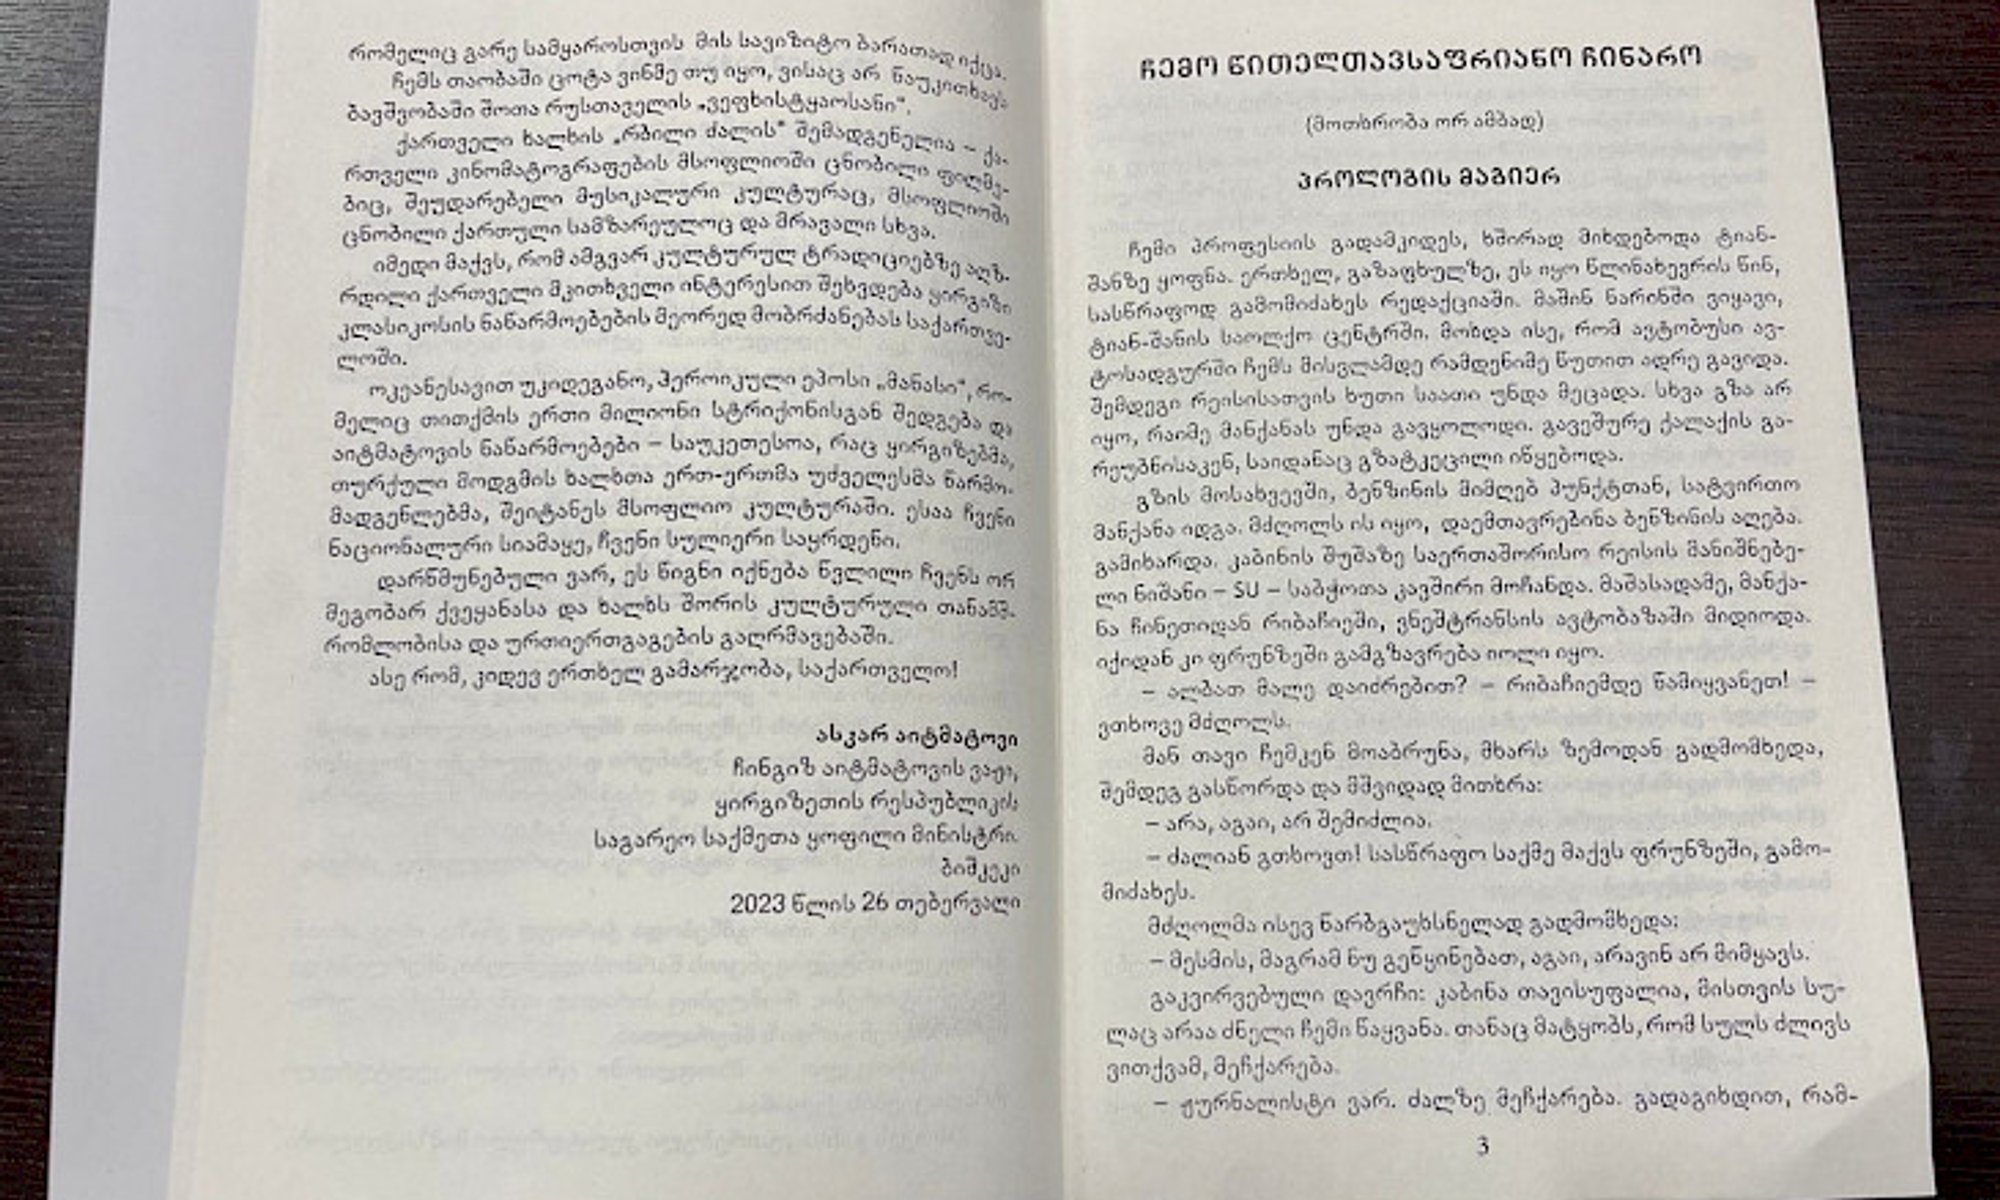 რომელიც გარე სამყაროსთვის მის სავიზიტო ბარათად იქცა.
ჩემს თაობაში ცოტა ვინმე თუ იყო, ვისაც არ წაუკითხავს
ბავშვობაში შოთა რუსთაველის „ვეფხისტყაოსანი“.
ქართველი ხალხის „რბილი ძალის“ შემადგენელია – ქა-
რთველი კინომატოგრაფების მსოფლიოში ცნობილი ფილმე-
ბიც, შეუდარებელი მუსიკალური კულტურაც, მსოფლიოში
ცნობილი ქართული სამზარეულოც და მრავალი სხვა.
იმედი მაქვს, რომ ამგვარ კულტურულ ტრადიციებზე აღზ-
რდილი ქართველი მკითხველი ინტერესით შეხვდება ყირგიზი
კლასიკოსის ნაწარმოებების მეორედ მობრძანებას საქართვე-
ლოში.
ოკეანესავით უკიდეგანო, ჰეროიკული ეპოსი „მანასი“, რო-
მელიც თითქმის ერთი მილიონი სტრიქონისგან შედგება და
აიტმატოვის ნაწარმოებები – საუკეთესოა, რაც ყირგიზებმა,
თურქული მოდგმის ხალხთა ერთ-ერთმა უძველესმა წარმო-
მადგენლებმა, შეიტანეს მსოფლიო კულტურაში. ესაა ჩვენი
ნაციონალური სიამაყე, ჩვენი სულიერი საყრდენი.
დარწმუნებული ვარ, ეს წიგნი იქნება წვლილი ჩვენს ორ
მეგობარ ქვეყანასა და ხალხს შორის კულტურული თანამშ-
რომლობისა და ურთიერთგაგების გაღრმავებაში.
ასე რომ, კიდევ ერთხელ გამარჯობა, საქართველო!
ასკარ აიტმატოვი
ჩინგიზ აიტმატოვის ვაჟი,
ყირგიზეთის რესპუბლიკის
საგარეო საქმეთა ყოფილი მინისტრი.
ბიშკეკი
2023 წლის 26 თებერვალი
ჩემო წითელთავსაფრიანო ჩინარო
(მოთხრობა ორ ამბად)
პროლოგის მაგიერ
ჩემი პროფესიის გადამკიდეს, ხშირად მიხდებოდა ტიან-
შანზე ყოფნა. ერთხელ, გაზაფხულზე, ეს იყო წლინახევრის წინ,
სასწრაფოდ გამომიძახეს რედაქციაში. მაშინ ნარინში ვიყავი,
ტიან-შანის საოლქო ცენტრში. მოხდა ისე, რომ ავტობუსი ავ-
ტოსადგურში ჩემს მისვლამდე რამდენიმე წუთით ადრე გავიდა.
შემდეგი რეისისათვის ხუთი საათი უნდა მეცადა. სხვა გზა არ
იყო, რაიმე მანქანას უნდა გავყოლოდი. გავეშურე ქალაქის გა-
რეუბნისაკენ, საიდანაც გზატკეცილი იწყებოდა.
გზის მოსახვევში, ბენზინის მიმღებ პუნქტთან, სატვირთო
მანქანა იდგა. მძღოლს ის იყო, დაემთავრებინა ბენზინის აღება.
გამიხარდა. კაბინის შუშაზე საერთაშორისო რეისის მანიშნებე-
ლი ნიშანი – SU – საბჭოთა კავშირი მოჩანდა. მაშასადამე, მანქა-
ნა ჩინეთიდან რიბაჩიეში, ვნეშტრანსის ავტობაზაში მიდიოდა.
იქიდან კი ფრუნზეში გამგზავრება იოლი იყო.
– ალბათ მალე დაიძრებით? – რიბაჩიემდე წამიყვანეთ! –
ვთხოვე მძღოლს.
მან თავი ჩემკენ მოაბრუნა, მხარს ზემოდან გადმომხედა,
შემდეგ გასწორდა და მშვიდად მითხრა:
– არა, აგაი, არ შემიძლია.
– ძალიან გთხოვთ! სასწრაფო საქმე მაქვს ფრუნზეში, გამო-
მიძახეს.
მძღოლმა ისევ წარბგაუხსნელად გადმომხედა:
– მესმის, მაგრამ ნუ გეწყინებათ, აგაი, არავინ არ მიმყავს.
გაკვირვებული დავრჩი: კაბინა თავისუფალია, მისთვის სუ-
ლაც არაა ძნელი ჩემი წაყვანა. თანაც მატყობს, რომ სულს ძლივს
ვითქვამ, მეჩქარება.
– ჟურნალისტი ვარ. ძალზე მეჩქარება. გადაგიხდით, რამ-
3